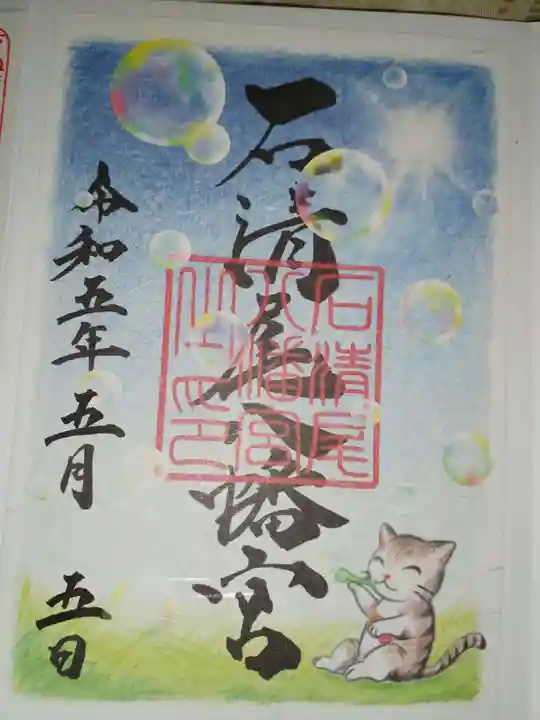 石清尾八幡宮
石清尾
八幡宮
之印
令和五年 五月 五日